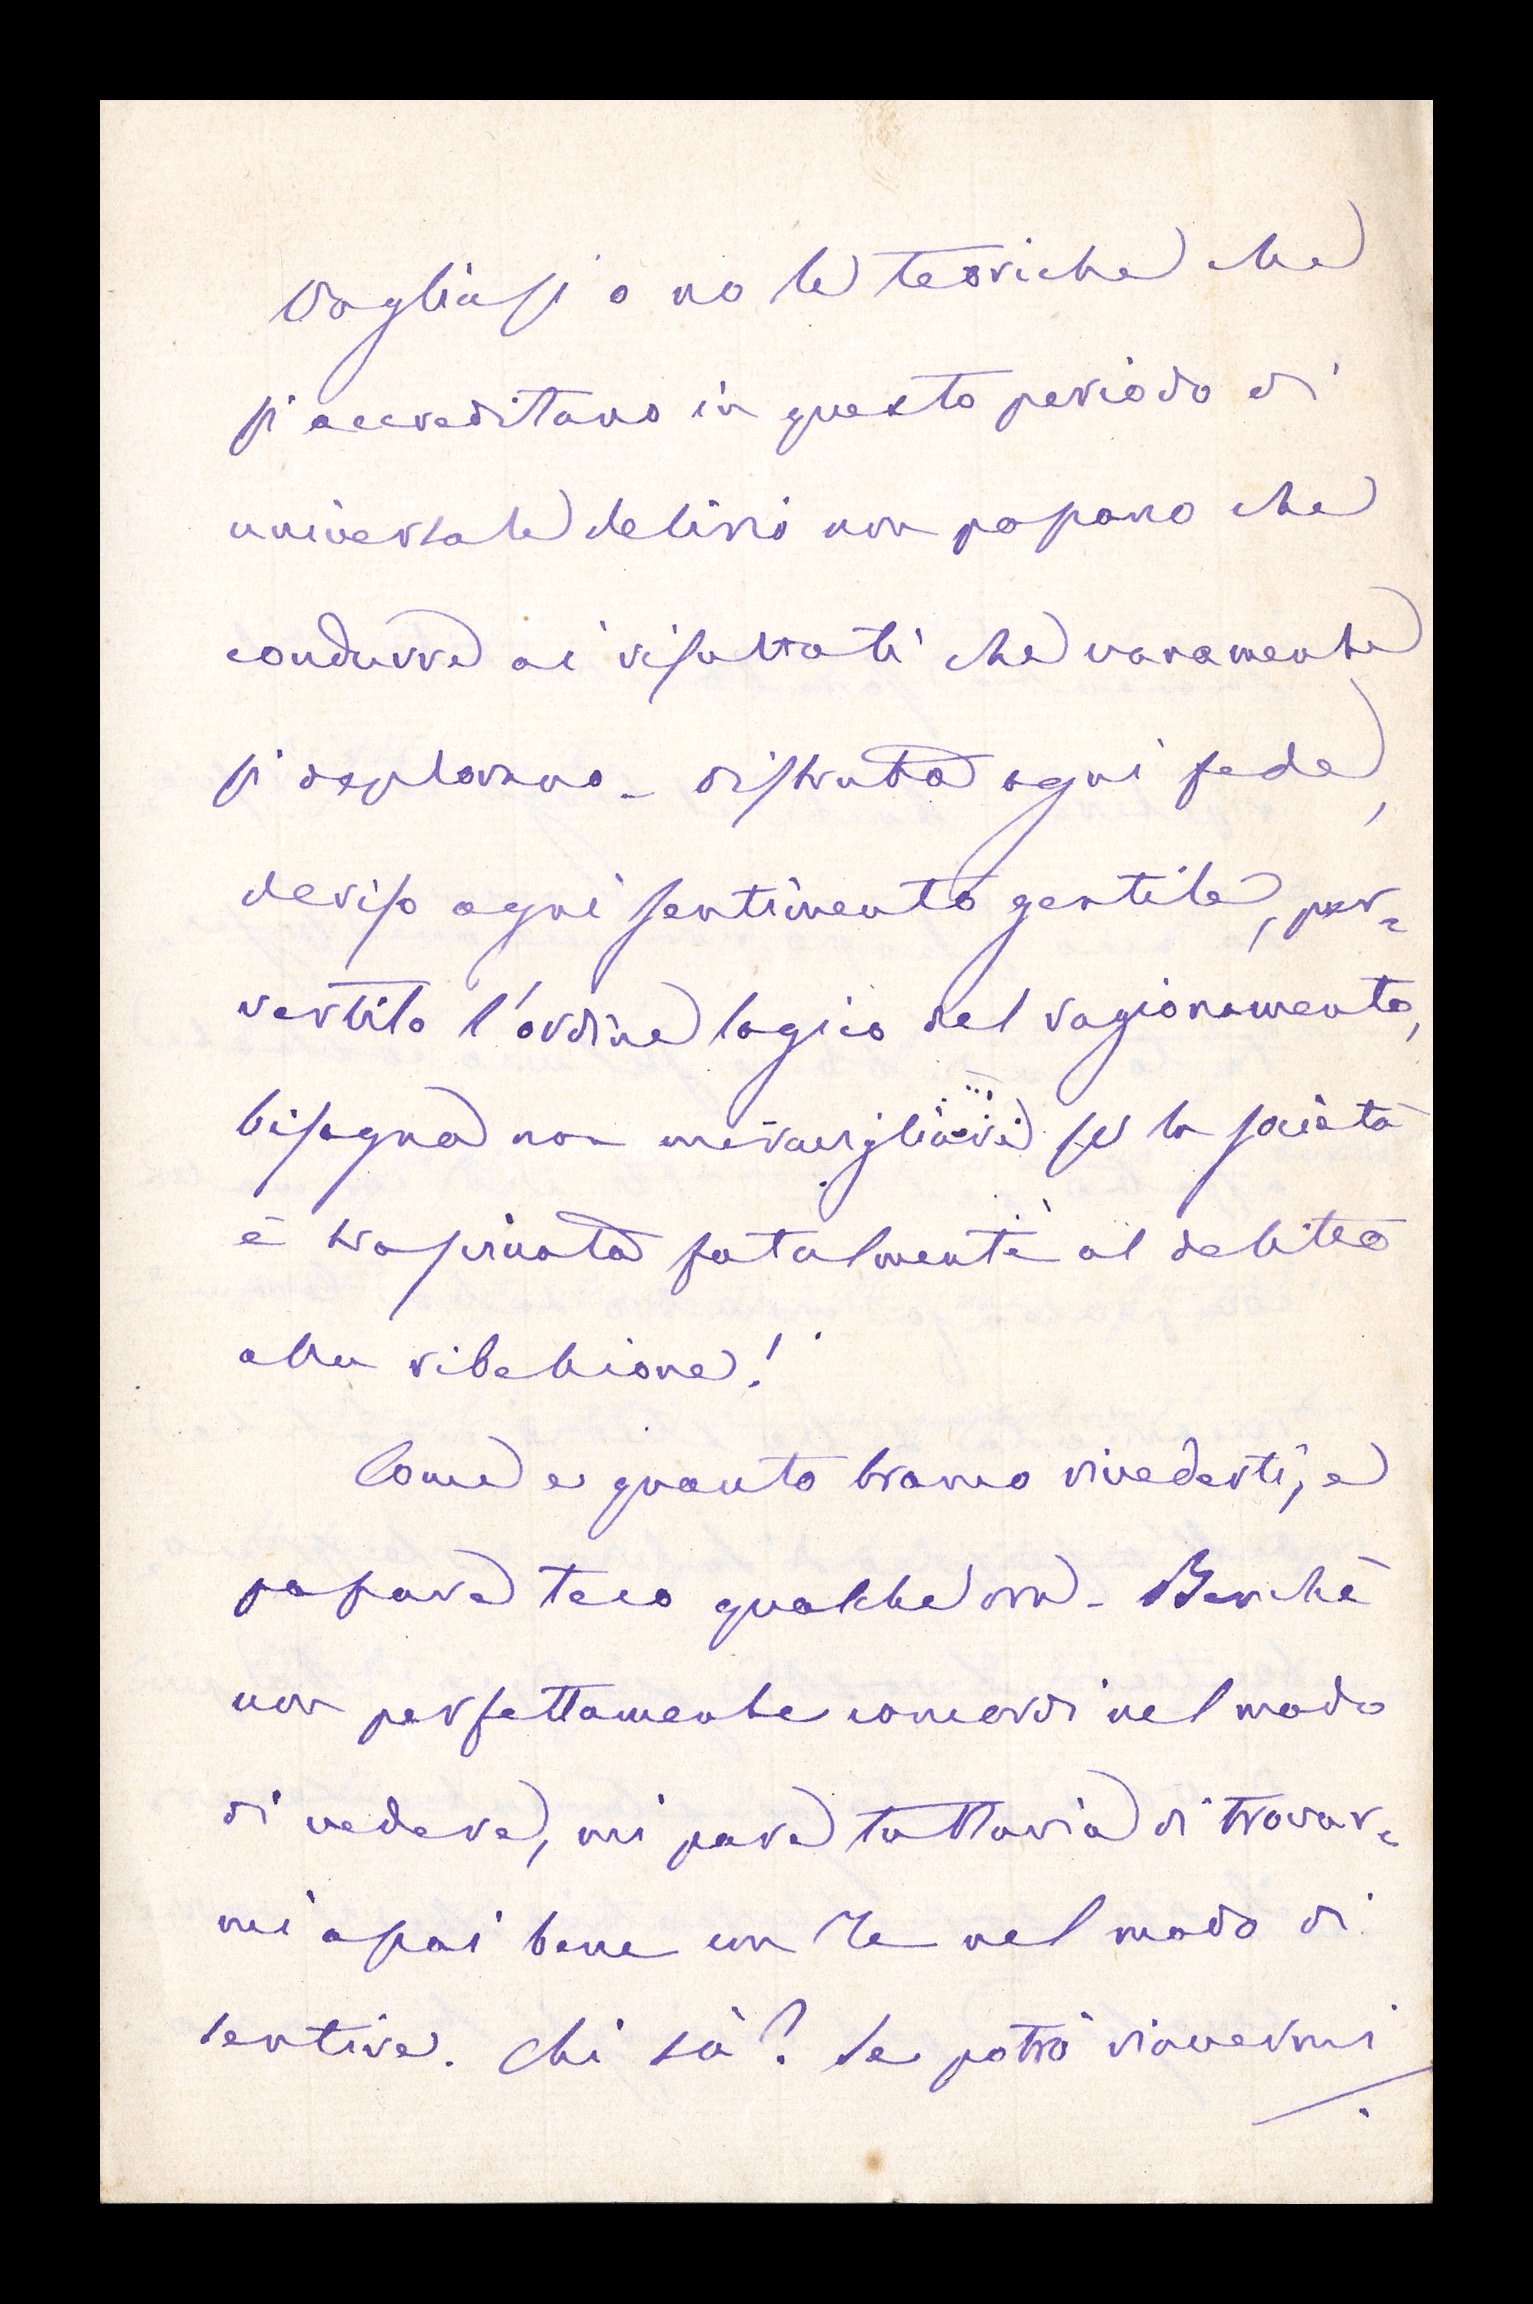 Vogliasi o no le teoriche che
si accreditano in questo periodo di
universale delirio non possono che
condurre ai risultati che vanamente
si deplorano - distrutta ogni fede,
deriso ogni sentimento gentile, per=
vertito l'ordine logico del ragionamento,
bisogna non meravigliarsi se la società
è trascinata fatalmente al delitto
alla ribellione!
Come e quanto bramo rivederti, e
passare teco qualche ora - Benchè
non perfettamente concordi nel modo
di vedere, mi pare tuttavia di trovar=
mi assai bene con Te nel modo di
sentire. Chi sà? Se potrò riavermi